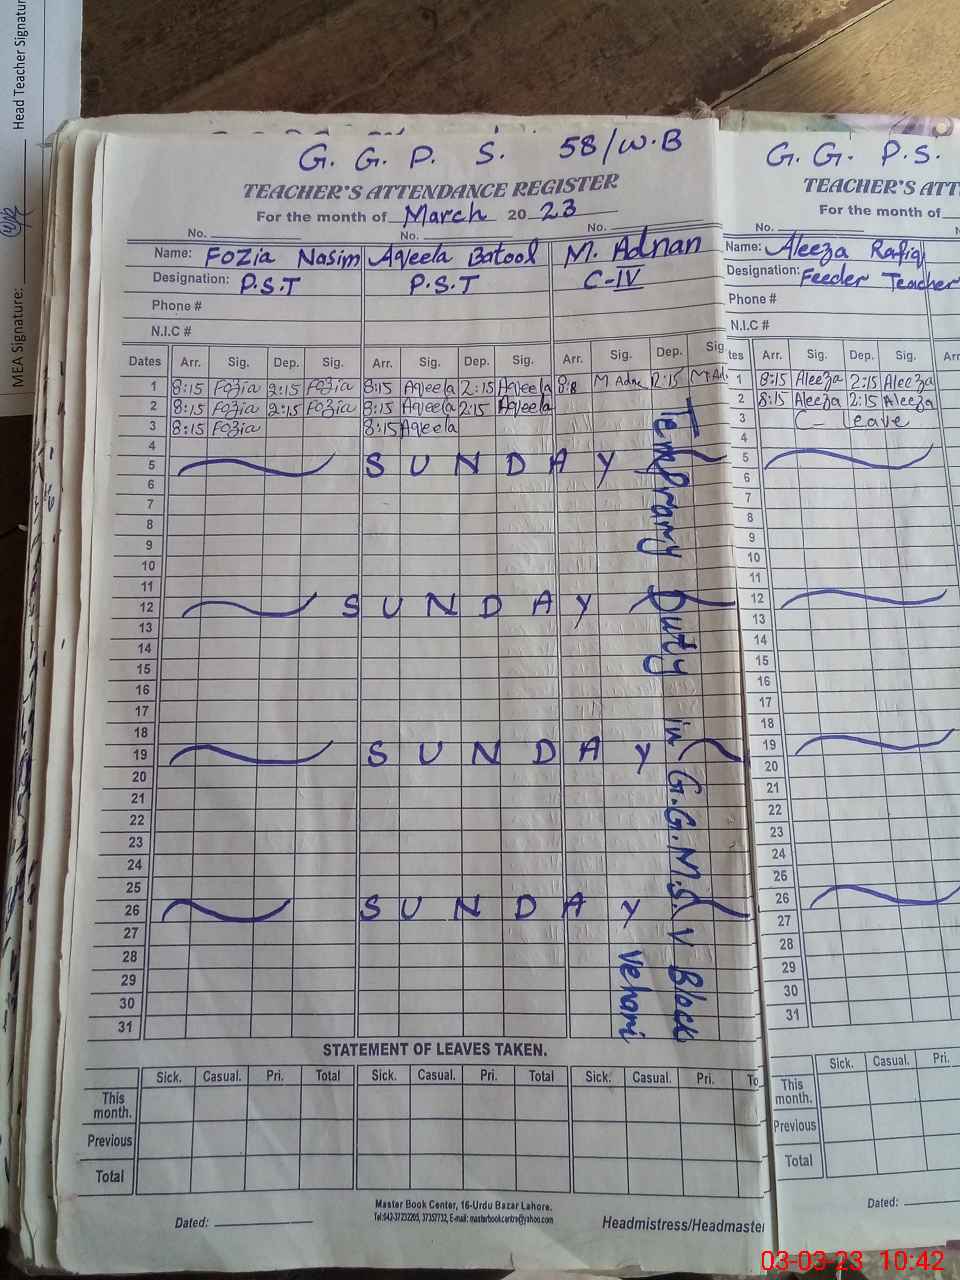 Head Teacher Signatur
MEA Signature:
G. G. P. S. 58/W.B
TEACHER'S ATTENDANCE REGISTER
For the month of March 2023
No. No. No.
Name: Fozia Nasim Aqeela Batool M. Adnan
Designation: P.S.T P.S.T C-IV
Phone #
N.I.C #
Dates Arr. Sig. Dep. Sig. Arr. Sig. Dep. Sig. Arr. Sig. Dep. Sig
1 8:15 Fozia 2:15 Fozia 8:15 Aqeela 2:15 Aqeela M. Adn 2:15 M. Ad
2 8:15 Fozia 2:15 Fozia 8:15 Aqeela 2:15 Aqeela
3 8:15 Fozia 8:15 Aqeela
4
5 SUNDAY
6
7
8
9
10
11
12 SUNDAY
13
14
15
16
17
18
19 SUNDAY
20
21
22
23
24
25
26 SUNDAY
27
28
29
30
31
Temprary Duty in G.G.M.S V Block
Vehari
STATEMENT OF LEAVES TAKEN.
Sick. Casual. Pri. Total Sick. Casual. Pri. Total Sick. Casual. Pri. To
This month.
Previous
Total
Master Book Center, 16-Urdu Bazar Lahore.
Dated: Headmistress/Headmaste
G. G. P.S.
TEACHER'S ATT
For the month of
N
Name: Aleeza Rafiq
Designation: Feeder Teacher
Phone #
N.I.C #
tes Arr. Sig. Dep. Sig. Arr
1 8:15 Aleeza 2:15 Aleeza
2 8:15 Aleeza 2:15 Aleeza
3 C- Leave
4
5
6
7
8
9
10
11
12
13
14
15
16
17
18
19
20
21
22
23
24
26
26
27
28
29
30
31
Sick. Casual. Pri.
This month.
Previous
Total
Dated:
03-03-23 10:42